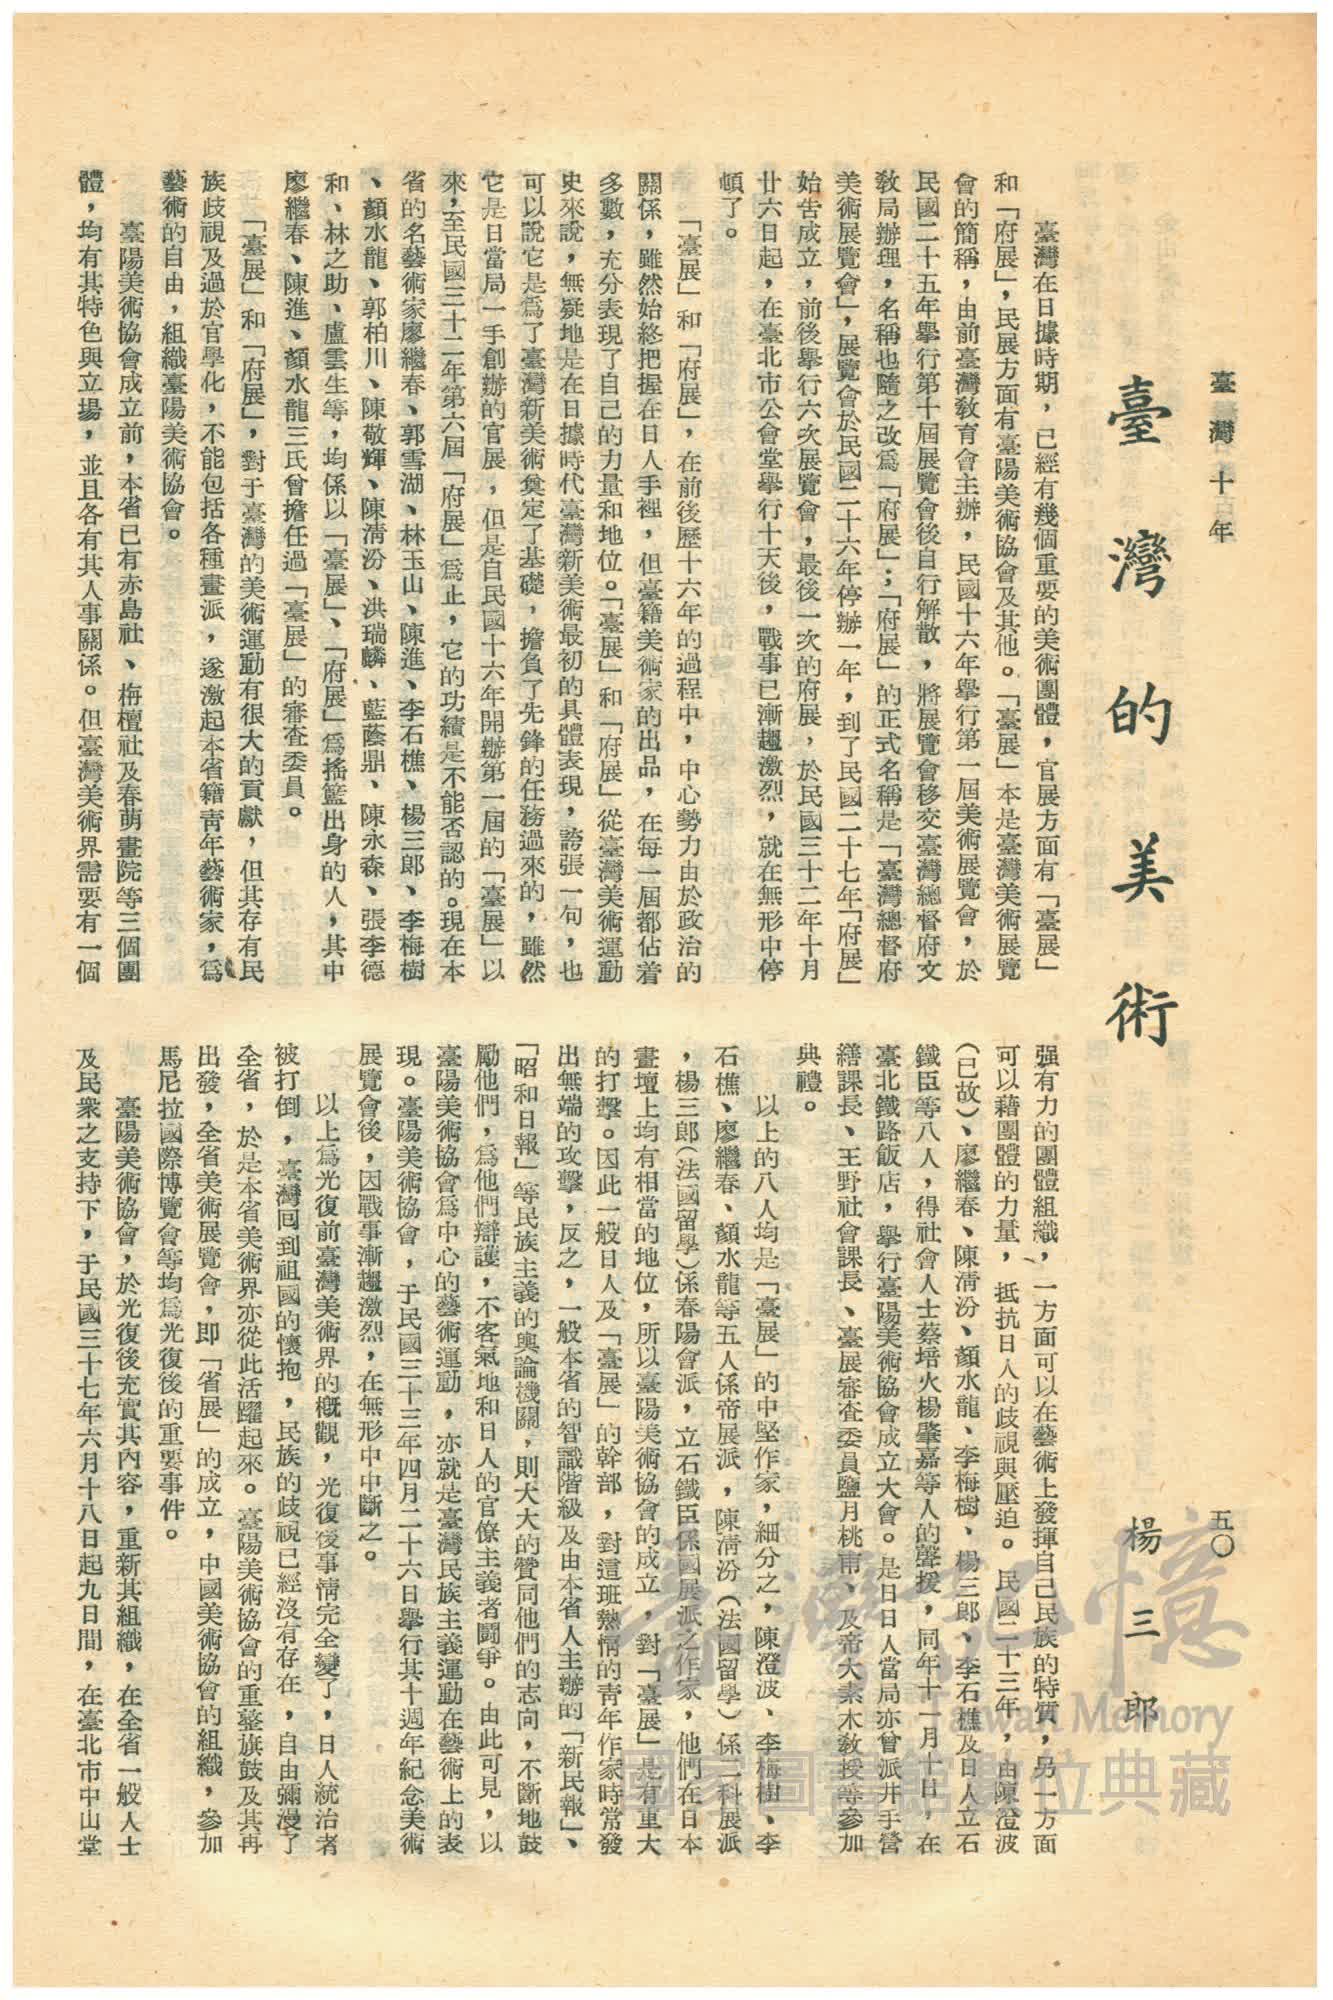 臺灣十年
五〇
臺灣的美術
楊三郎
臺灣在日據時期，已經有幾個重要的美術團體，官展方面有「臺展」
和「府展」，民展方面有臺陽美術協會及其他。「臺展」本是臺灣美術展覽
會的簡稱，由前臺灣教育會主辦，民國十六年舉行第一屆美術展覽會，於
民國二十五年舉行第十屆展覽會後自行解散，將展覽會移交臺灣總督府文
教局辦理，名稱也隨之改為「府展」；「府展」的正式名稱是「臺灣總督府
美術展覽會」，展覽會於民國二十六年停辦一年，到了民國二十七年「府展」
始告成立，前後舉行六次展覽會，最後一次的府展，於民國三十二年十月
廿六日起，在臺北市公會堂舉行十天後，戰事已漸趨激烈，就在無形中停
頓了。
「臺展」和「府展」，在前後歷十六年的過程中，中心勢力由於政治的
關係，雖然始終把握在日人手裡，但臺籍美術家的出品，在每一屆都佔着
多數，充分表現了自己的力量和地位。「臺展」和「府展」從臺灣美術運動
史來說，無疑地是在日據時代臺灣新美術最初的具體表現，誇張一句，也
可以說它是為了臺灣新美術奠定了基礎，擔負了先鋒的任務過來的，雖然
它是日當局一手創辦的官展，但是自民國十六年開辦第一屆的「臺展」以
來，至民國三十二年第六屆「府展」為止，它的功績是不能否認的。現在本
省的名藝術家廖繼春、郭雪湖、林玉山、陳進、李石樵、楊三郎、李梅樹
、顏水龍、郭柏川、陳敬輝、陳清汾、洪瑞麟、藍蔭鼎、陳永森、張李德
和、林之助、盧雲生等，均係以「臺展」、「府展」為搖籃出身的人，其中
廖繼春、陳進、顏水龍三氏曾擔任過「臺展」的審查委員。
「臺展」和「府展」，對于臺灣的美術運動有很大的貢獻，但其存有民
族歧視及過於官學化，不能包括各種畫派，遂激起本省籍青年藝術家，為
藝術的自由，組織臺陽美術協會。
臺陽美術協會成立前，本省已有赤島社、栴檀社及春萌畫院等三個團
體，均有其特色與立場，並且各有其人事關係。但臺灣美術界需要有一個
强有力的團體組織，一方面可以在藝術上發揮自己民族的特質，另一方面
可以藉團體的力量，抵抗日人的歧視與壓迫。民國二十三年，由陳澄波
（已故）、廖繼春、陳清汾、顏水龍、李梅樹、楊三郎、李石樵及日人立石
鐵臣等八人，得社會人士蔡培火楊肇嘉等人的聲援，同年十一月十日，在
臺北鐵路飯店，舉行臺陽美術協會成立大會。是日日人當局亦曾派井手營
繕課長、王野社會課長、臺展審查委員鹽月桃甫、及帝大素木教授等參加
典禮。
以上的八人均是「臺展」的中堅作家，細分之，陳澄波、李梅樹、李
石樵、廖繼春、顏水龍等五人係帝展派，陳清汾（法國留學）係二科展派
，楊三郎（法國留學）係春陽會派，立石鐵臣係國展派之作家，他們在日本
畫壇上均有相當的地位，所以臺陽美術協會的成立，對「臺展」是有重大
的打擊。因此一般日人及「臺展」的幹部，對這班熱情的青年作家時常發
出無端的攻擊，反之，一般本省的智識階級及由本省人主辦的「新民報」、
「昭和日報」等民族主義的輿論機關，則大大的贊同他們的志向，不斷地鼓
勵他們，為他們辯護，不客氣地和日人的官僚主義者鬪爭。由此可見，以
臺陽美術協會為中心的藝術運動，亦就是臺灣民族主義運動在藝術上的表
現。臺陽美術協會，于民國三十三年四月二十六日舉行其十週年紀念美術
展覽會後，因戰事漸趨激烈，在無形中中斷之。
以上為光復前臺灣美術界的概觀，光復後事情完全變了，日人統治者
被打倒，臺灣回到祖國的懷抱，民族的歧視已經沒有存在，自由彌漫了
全省，於是本省美術界亦從此活躍起來。臺陽美術協會的重整旗鼓及其再
出發，全省美術展覽會，即「省展」的成立，中國美術協會的組織，參加
馬尼拉國際博覽會等均為光復後的重要事件。
臺陽美術協會，於光復後充實其內容，重新其組織，在全省一般人士
及民衆之支持下，于民國三十七年六月十八日起九日間，在臺北市中山堂
臺灣記憶
Taiwan Memory
國家圖書館數位典藏